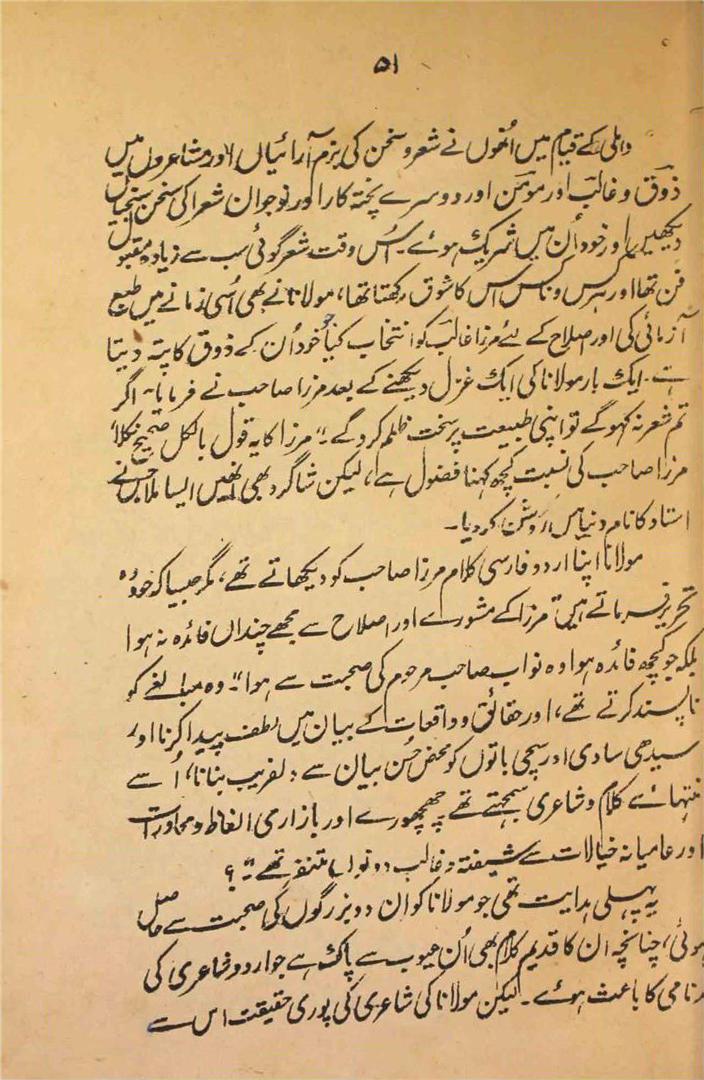 ۵۱
دہلی کے قیام میں انھوں نے شعر و سخن کی بزم آرائیاں اور مشاعروں میں
ذوق و غالب اور مومن اور دوسرے پختہ کار اور نوجوان شعرا کی سخن سنجیاں
دیکھیں اور خود اُن میں شریک ہوئے۔ اُس وقت شعر گوئی سب سے زیادہ مقبول
فن تھا اور ہر کس و ناکس اس کا شوق رکھتا تھا، مولانا نے بھی اُسی زمانے میں طبع
آزمائی کی اور اصلاح کے لئے مرزا غالب کو انتخاب کیا جو خود اُن کے ذوق کا پتہ دیتا
ہے۔ ایک بار مولانا کی ایک غزل دیکھنے کے بعد مرزا صاحب نے فرمایا۔ اگر
تم شعر نہ کہو گے تو اپنی طبیعت پر سخت ظلم کرو گے"۔ مرزا کا یہ قول بالکل صحیح نکلا
مرزا صاحب کی نسبت کچھ کہنا فضول ہے، لیکن شاگرد بھی انھیں ایسا ملا جس نے
استاد کا نام دنیا میں روشن کر دیا۔
مولانا اپنا اردو فارسی کلام مرزا صاحب کو دیکھاتے تھے، مگر جیسا کہ خود وہ
تحریر فرماتے ہیں "مرزا کے مشورے اور اصلاح سے مجھے چنداں فائدہ نہ ہوا
بلکہ جو کچھ فائدہ ہوا وہ نواب صاحب مرحوم کی صحبت سے ہوا"۔ وہ مبالغے کو
ناپسند کرتے تھے، اور حقائق و واقعات کے بیان میں لطف پیدا کرنا اور
سیدھی سادی اور سچی باتوں کو محض حُسن بیان سے دلفریب بنانا، اُسے
منتہائے کلام و شاعری سمجھتے تھے چھچھورے اور بازاری الفاظ و محاورات
اور عامیانہ خیالات سے شیفتہ و غالب دونوں متنفر تھے"۔
یہ پہلی ہدایت تھی جو مولانا کو ان دو بزرگوں کی صحبت سے حاصل
ہوئی، چنانچہ ان کا قدیم کلام بھی اُن عیوب سے پاک ہے جو اردو شاعری کی
بدنامی کا باعث ہوئے۔ لیکن مولانا کی شاعری کی پوری حقیقت اس سے